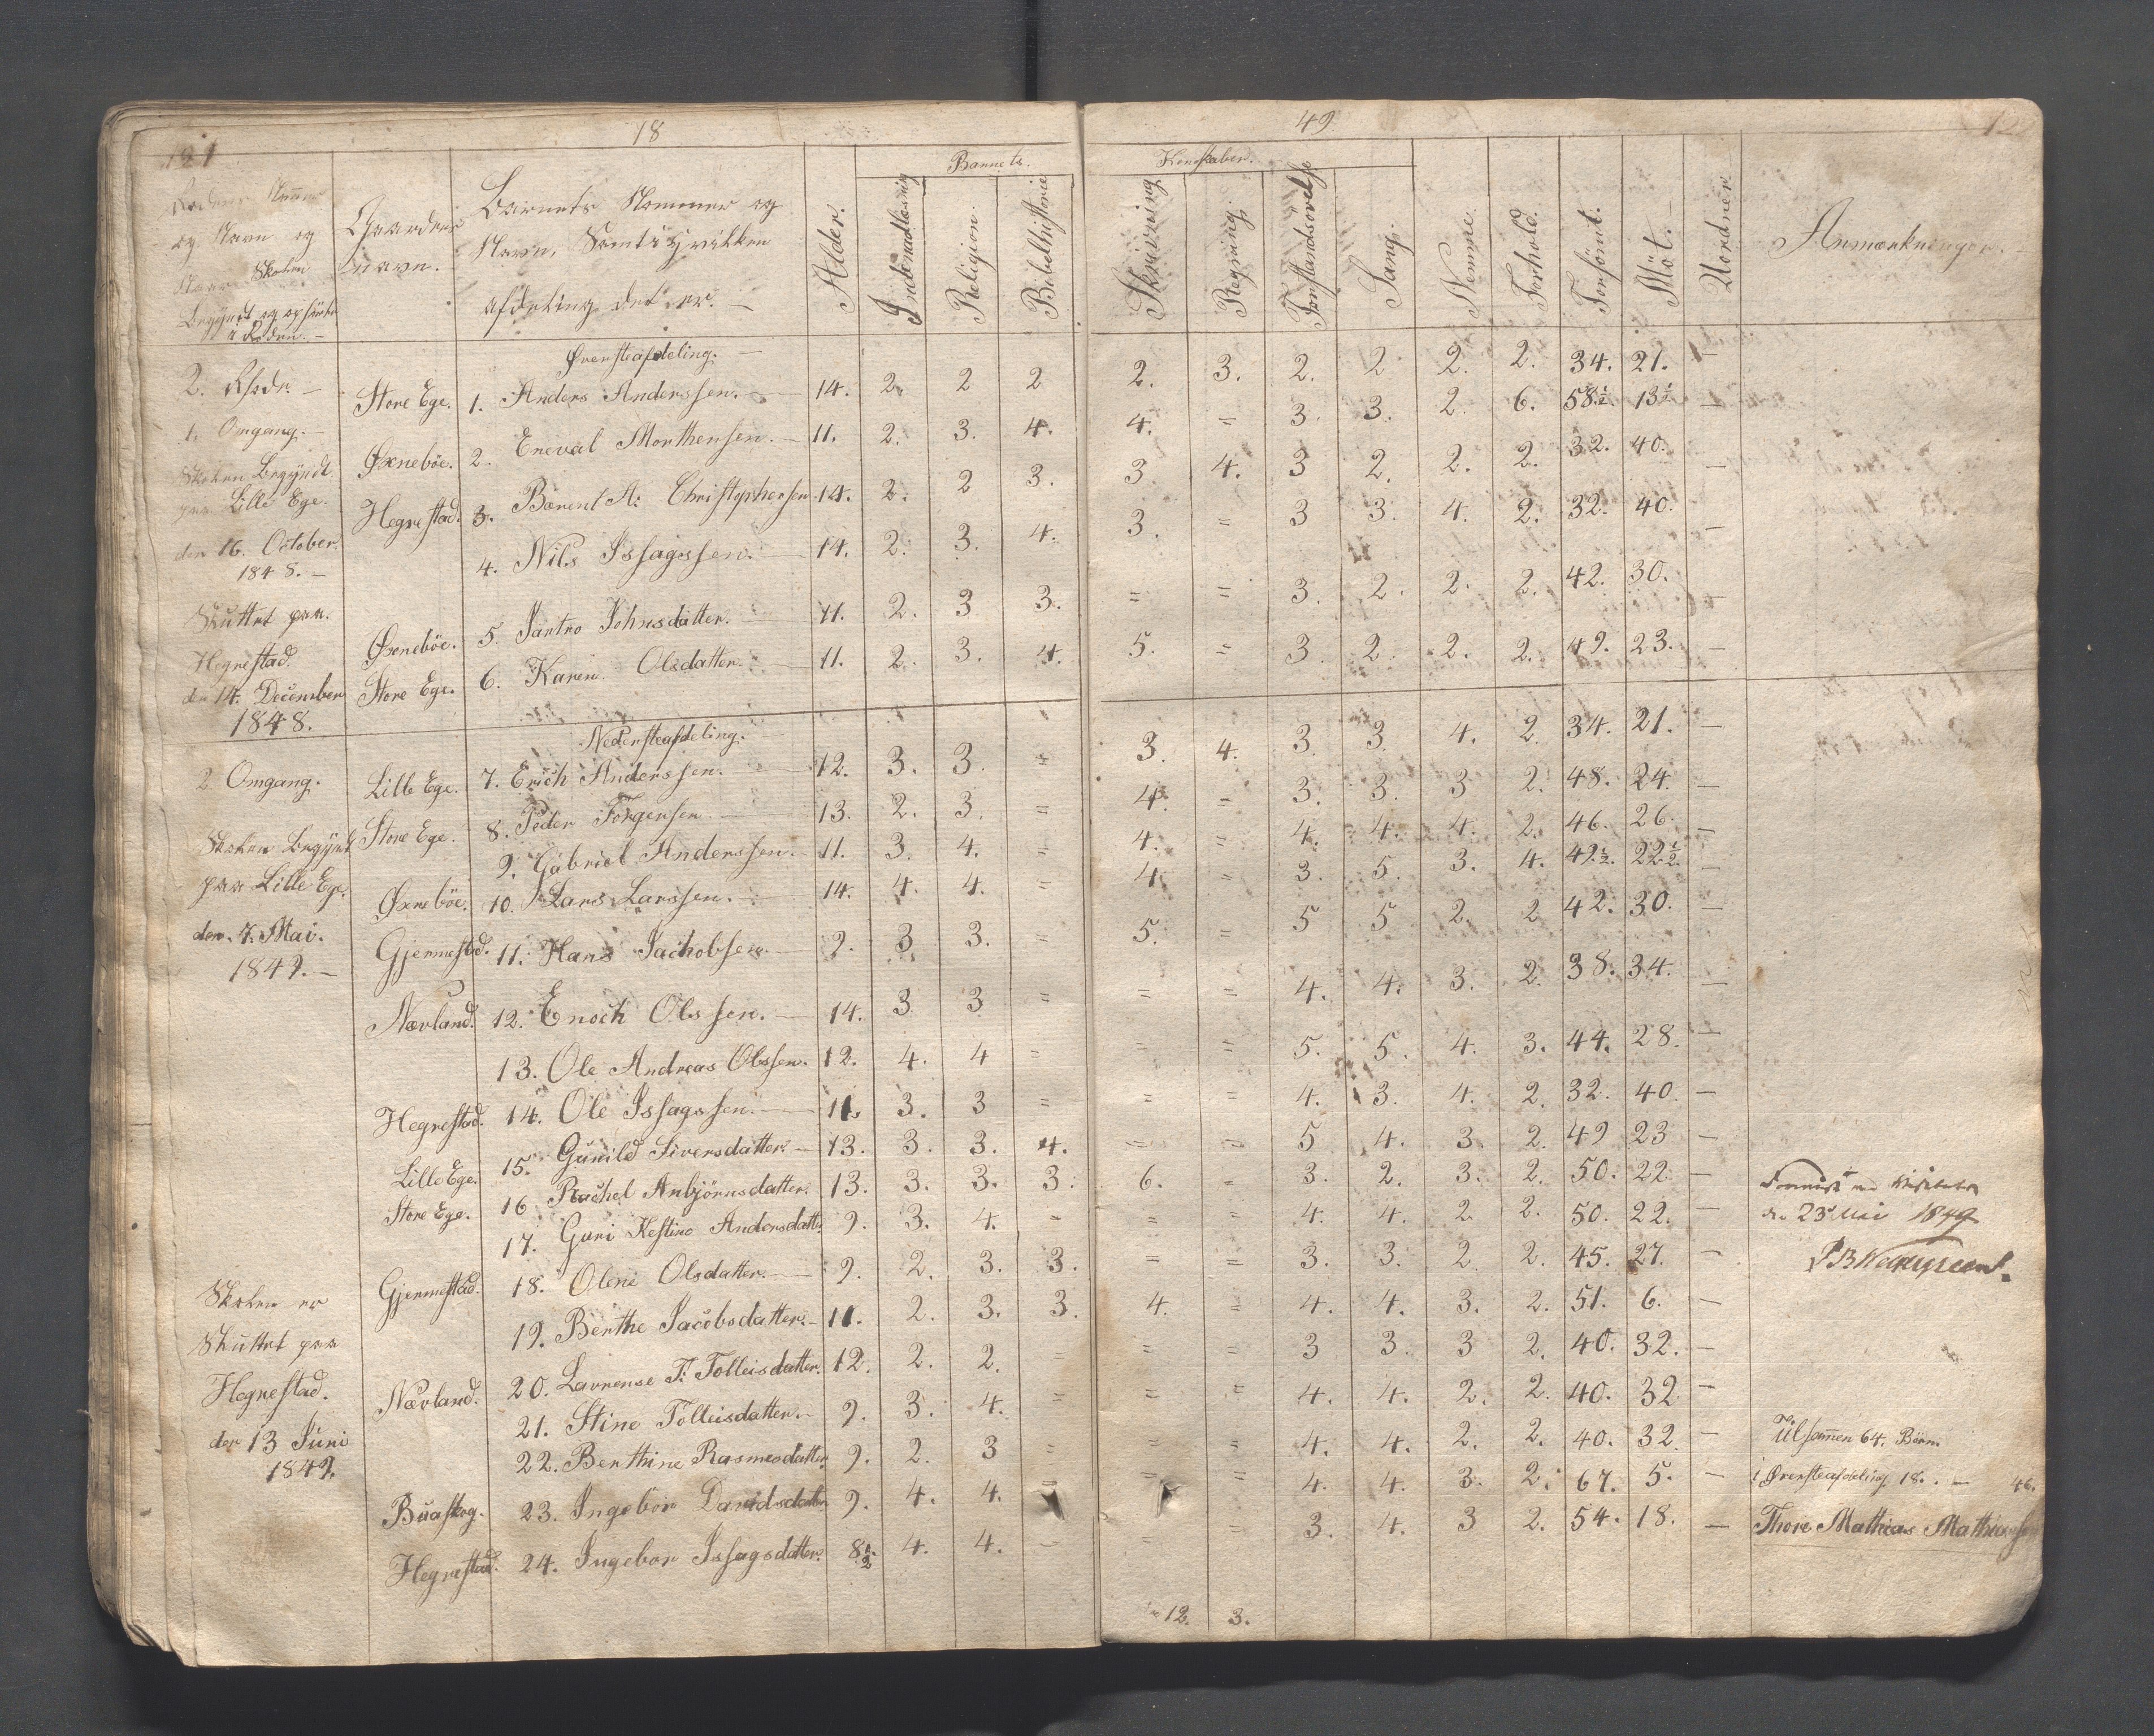 121 18
Rodens Nummer og Navn og Naar Skolen Begyndt og ophørte i Roden. —
Gaardens Navn.
Barnets Nommer og Navn, Samt i hvilken afdeling det er. —
Alder.
Barnets
Indenadlæsning
Religion.
Bibelhistorie
49 122
Kundskaber.
Skrivning
Regning.
Forstandsøvelse
Sang.
Nemme.
Forhold.
Forsømt.
Møt.
Uordner
Anmærkninger. —
2. Rode. —
1. Omgang. —
Skolen Begyndt
paa Lille Ege.
den 16. October.
1848. —
Sluttet paa.
Hegrestad.
den 14. December
1848.
2 Omgang.
Skolen Begynt
paa Lille Ege.
den. 7. Mai.
1849. —
Skolen er
Sluttet paa
Hegrestad.
den 13 Juni
1849.
Øversteafdeling. —
Store Ege. 1. Anders Anderssen. — 14. 2. 2 2 2. 3. 2. 2 2. 2. 34. 21. —
Øxnebøe. 2. Eneval Morthensen. — 11. 2. 3. 4. 4. = 3. 3. 2. 6. 58½ 13½ —
Hegrestad. 3. Barent A: Christophersen 14. 2. 2 3. 3. 4. 3 2. 2. 2. 32. 40. —
4. Nils Issagssen. — 14. 2. 3. 4. 3. = 3 3. 4. 2. 32. 40. —
Øxnebøe. 5. Johnsdatter. — 11. 2. 3 3. = = 3. 2. 2. 2. 42. 30. —
Store Ege. 6. Karen Olsdatter. — 11. 2. 3. 4. 5. = 3. 2. 2. 2. 49. 23. —
Nedersteafdeling. —
Lille Ege. 7. Erich Anderssen. — 12. 3. 3. = 3. 4. 3. 3. 4. 2. 34. 21. —
Store Ege. 8. Peder Torgersen — 13. 2. 3. = 4. = 3. 3. 3 2. 48. 24. —
9. Gabriel Anderssen. — 11. 3. 4. = 4. = 4. 4. 4. 2. 46. 26. —
Øxnebøe. 10. Lars Larssen. — 14. 4. 4. = 4. = 3. 5. 3. 4. 49½. 22½. —
Gjermestad. 11. Hans Jachobsen — 9. 3 3. = 5. = 5 5 2. 2 42. 30. —
Nævland. 12. Enoch Olssen. — 14. 3 3 = = = 4. 4. 3. 2. 38. 34. —
13. Ole Andreas Olssen. 12. 4. 4 = = = 5. 5. 4. 3. 44. 28. —
Hegrestad. 14. Ole Issagssen. — 11. 3. 3 = = = 4. 3. 4. 2. 32. 40. —
Lille Ege. 15. Gunild Siversdatter — 13. 3. 3. 4. = = 5 4. 3. 2. 49 23 —
Store Ege. 16 Rachel Anbjörnsdatter. 13. 3. 3. 3. 6. = 3. 2. 3. 2. 50. 22. —
17. Guri Kestine Andersdatt. 9. 3. 4. = = = 4. 4. 2 2. 50. 22. —
Gjermestad. 18. Olene Olsdatter. — 9. 2. 3. 3. = = 3. 3. 2 2. 45. 27. —
19. Berthe Jacobsdatter. — 11. 2. 3. 3. 4. = 4. 4. 3. 2. 51. 6. —
Nævland. 20. Lavrense T: Tolleisdatter. 12. 2. 2. = = = 3 3. 3 2. 40. 32. —
21. Stine Tolleisdatter. — 9. 3. 4. = = = 4. 4. 2. 2. 40. 32 —
22. Berthine Rasmesdatter. 9. 2. 3 = = = 4. 4. 2. 2. 40. 32. —
Buaskog. 23. Ingebor Davidsdatter 9. 4. 4. = = = 4. 4. 3. 2. 67. 5. —
Hegrestad. 24. Ingebor Issagsdatter. 8½ 4. 4. = = = 3. 4. 3 2. 54. 18. —
12. 3.
den 23 Mai 1849
Tilsammen 64. Børn.
i Øversteafdeling 18. . — 46.
Thore Mathias Mathiassen